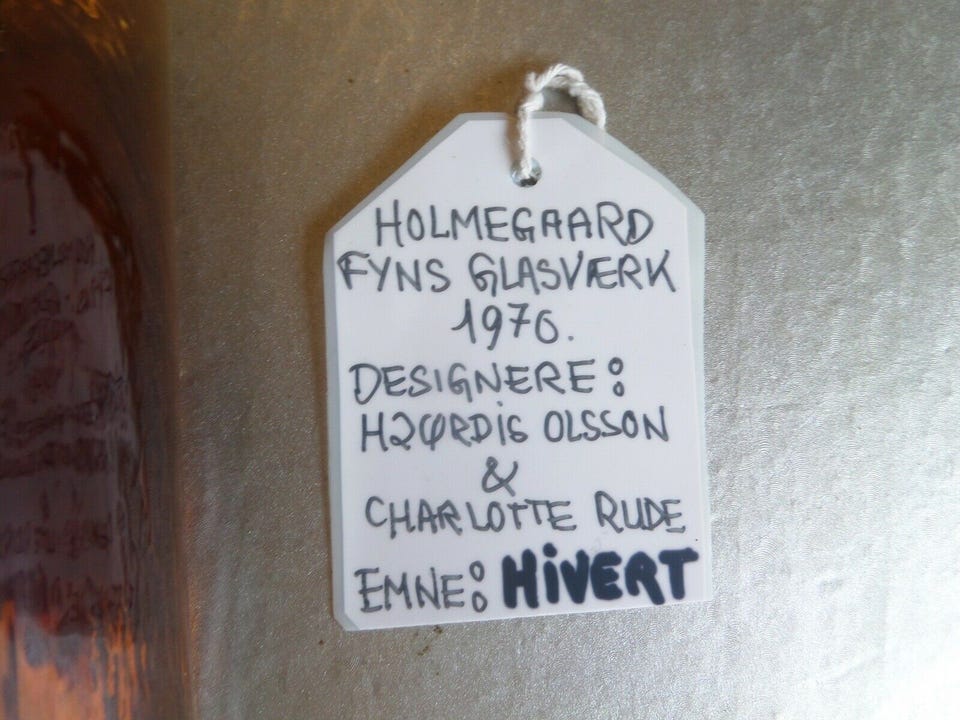 HOLMEGAARD
FYNS GLASVÆRK
1970.
DESIGNERE:
HJØRDIS OLSSON
&
CHARLOTTE RUDE
EMNE: HiVERT